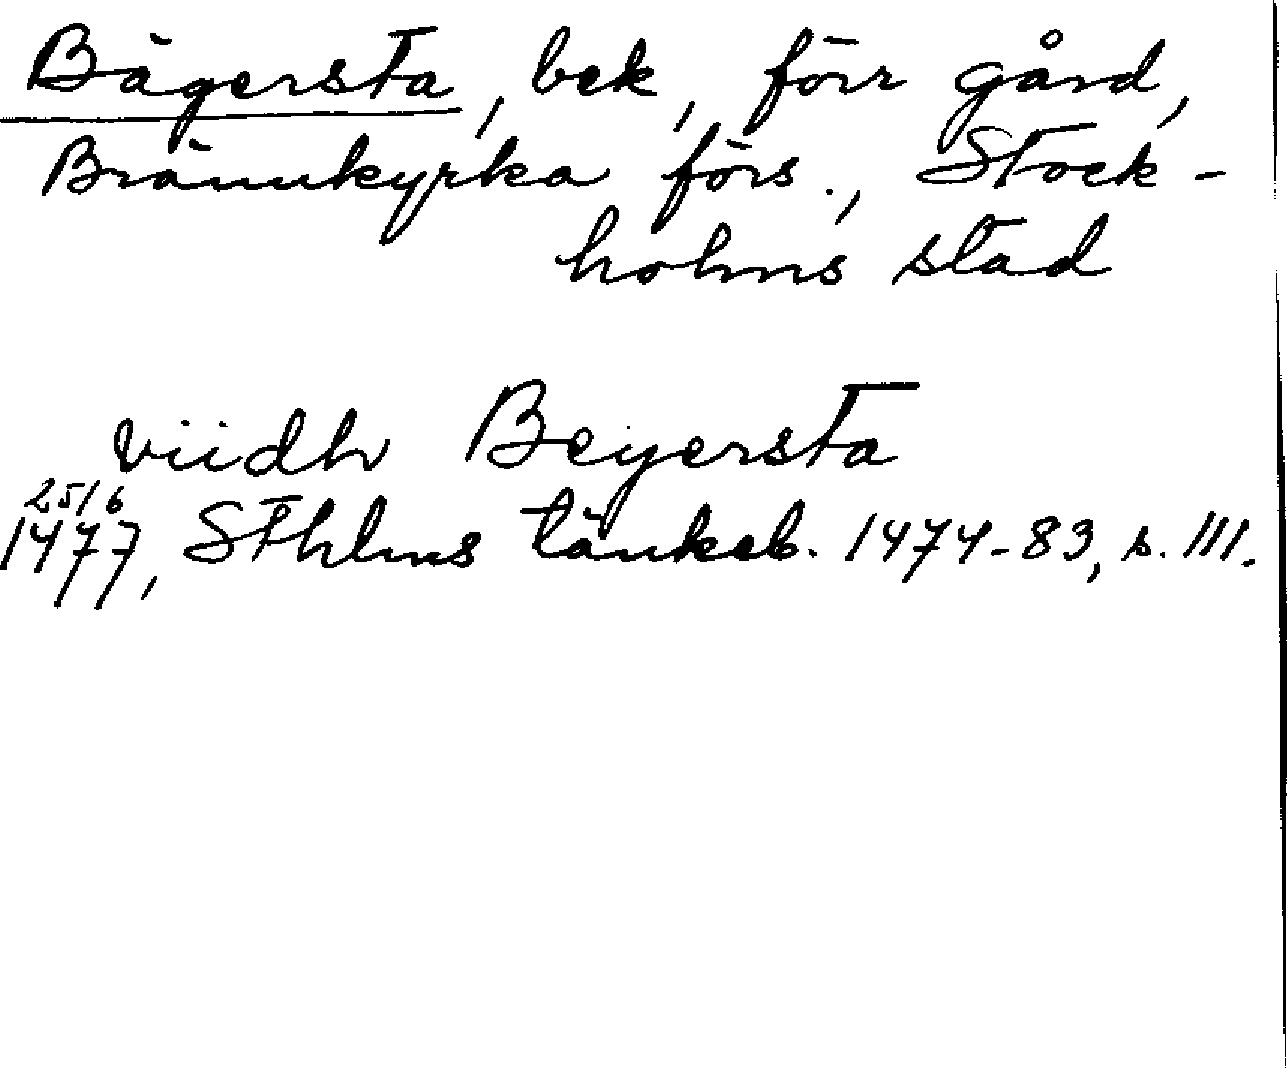 Bägersta, bek, förr gård,
Brännkyrka förs., Stock-
holms stad
viidh Beyersta
25/6
1477, Sthlms tänkeb. 1474-83, s. 111.